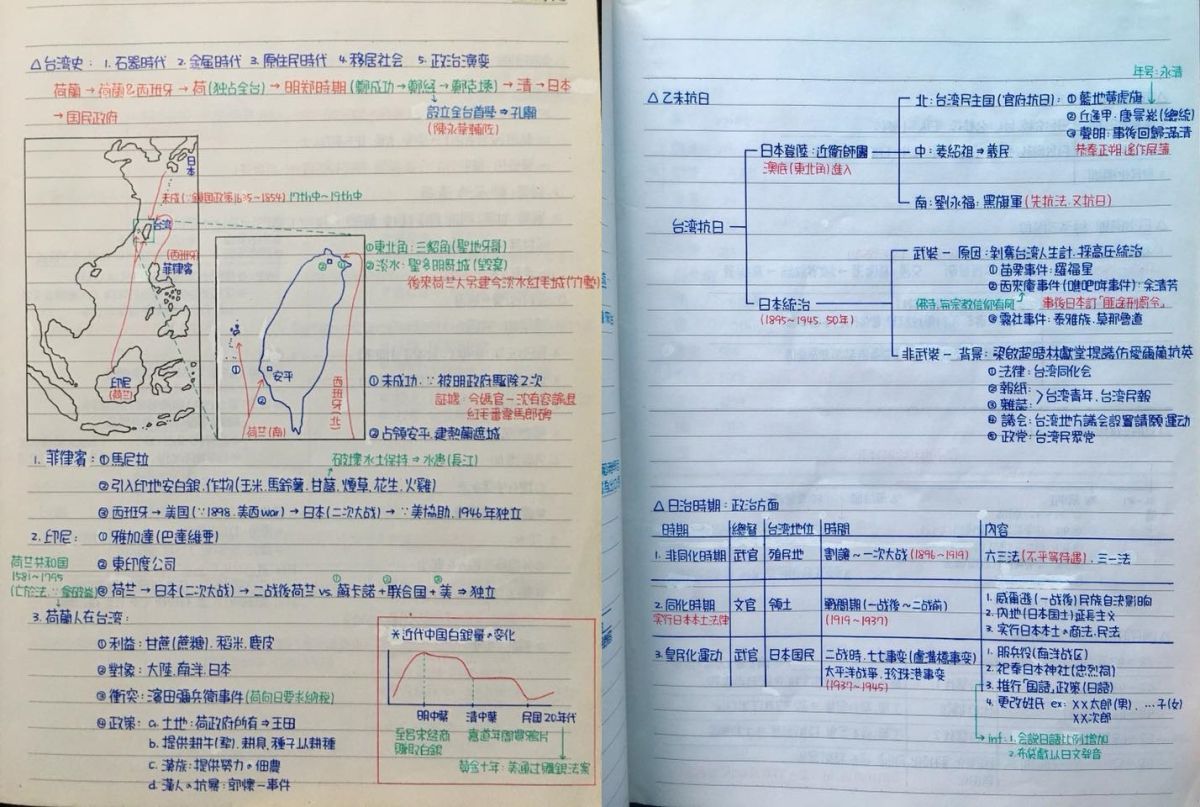 △台湾史: 1. 石器時代 2. 金属時代 3. 原住民時代 4. 移居社会 5. 政治演变
荷蘭 → 荷蘭&西班牙 → 荷(独占全台) → 明郑時期(鄭成功→鄭經→鄭克塽) → 清 → 日本
→ 国民政府
設立全台首學 → 孔廟
(陳永華輔佐)
日本
未成(∵鎖国政策1635~1854) 17th中~19th中
台湾
(西班牙)
菲律賓
印尼
(荷兰)
①東北角:三貂角(聖地牙哥)
②淡水:聖多明哥城(毀棄)
後來荷兰人另建今淡水紅毛城
② ①
①
安平
②
荷兰(南)
西班牙(北)
①未成功 ∵ 被明政府驅除2次
証據:今媽宮-沈有容諭退
紅毛番韋馬郎碑
②占領安平.建熱蘭遮城
1. 菲律賓: ①馬尼拉
破壞水土保持 ⇒ 水患(長江)
②引入印地安白銀.作物(玉米.馬鈴薯.甘藷.煙草.花生.火雞)
③西班牙 → 美国(∵1898.美西war) → 日本(二次大战) → ∵美協助.1946年独立
2. 印尼: ①雅加達(巴達維亜)
②東印度公司
荷兰共和国
1581~1795
(亡於法.∵拿破崙)
③荷兰 → 日本(二次大战) → 二战後荷兰 vs. 蘇卡諾+联合国+美 ⇒ 独立
① ② ③
3. 荷蘭人在台湾:
①利益:甘蔗(蔗糖).稻米.鹿皮
②對象:大陸.南洋.日本
③衝突:濱田彌兵衛事件(荷向日要求納稅)
④政策: a. 土地:荷政府所有 ⇒ 王田
b. 提供耕牛(犁).耕具.種子以耕種
c. 漢族:提供努力の佃農
d. 漢人の抗暴:郭懷一事件
*近代中国白銀量の变化
明中葉 清中葉 民国20年代
至呂宋経商
賺取白銀
嘉道年間買鴉片
黄金十年:美通过購銀法案
年号:永清
△乙未抗日
台湾抗日
日本登陸:近衛師團
澳底(東北角)進入
北:台湾民主国(官府抗日): ①藍地黄虎旗
②丘逢甲.唐景崧(總統)
③声明:事後回歸滿清
恭奉正朔.遙作屏藩
中:姜紹祖 ⇒ 義民
南:劉永福:黒旗軍(先抗法.又抗日)
日本統治
(1895~1945. 50年)
武裝 - 原因:剝奪台湾人生計.採高压統治
①苗栗事件:羅福星
②西來庵事件(噍吧哖事件):余清芳
佛寺.与宗教信仰有関
事後日本訂「匪徒刑罰令」
③霧社事件:泰雅族.莫那魯道
非武裝 - 背景:梁啟超時林獻堂提議仿愛爾蘭抗英
①法律:台湾同化会
②報紙:
③雜誌:
>台湾青年.台湾民報
④議会:台湾地方議会設置請願運动
⑤政党:台湾民眾党
△日治時期:政治方面
時期 總督 台湾地位 時間 内容
1. 非同化時期 武官 殖民地 割讓~一次大战(1896~1919) 六三法(不平等待遇).三一法
2. 同化時期 文官 領土 戰間期(一战後~二战前)
実行日本本土法律
(1919~1937)
1. 威爾遜(一战後)民族自決影响
2. 内地(日本国土)延長主义
3. 実行日本本土の商法.民法
3. 皇民化運动 武官 日本国民 二战時.七七事変(盧溝橋事変)
太平洋战爭.珍珠港事変
(1937~1945)
1. 服兵役(南洋战区)
2. 祀奉日本神社(忠烈祠)
3. 推行「国語」政策(日語)
4. 更改姓氏 ex: XX太郎(男). …子(女)
XX次郎
inf: 1. 会説日語比例增加
2. 布袋戲以日文発音